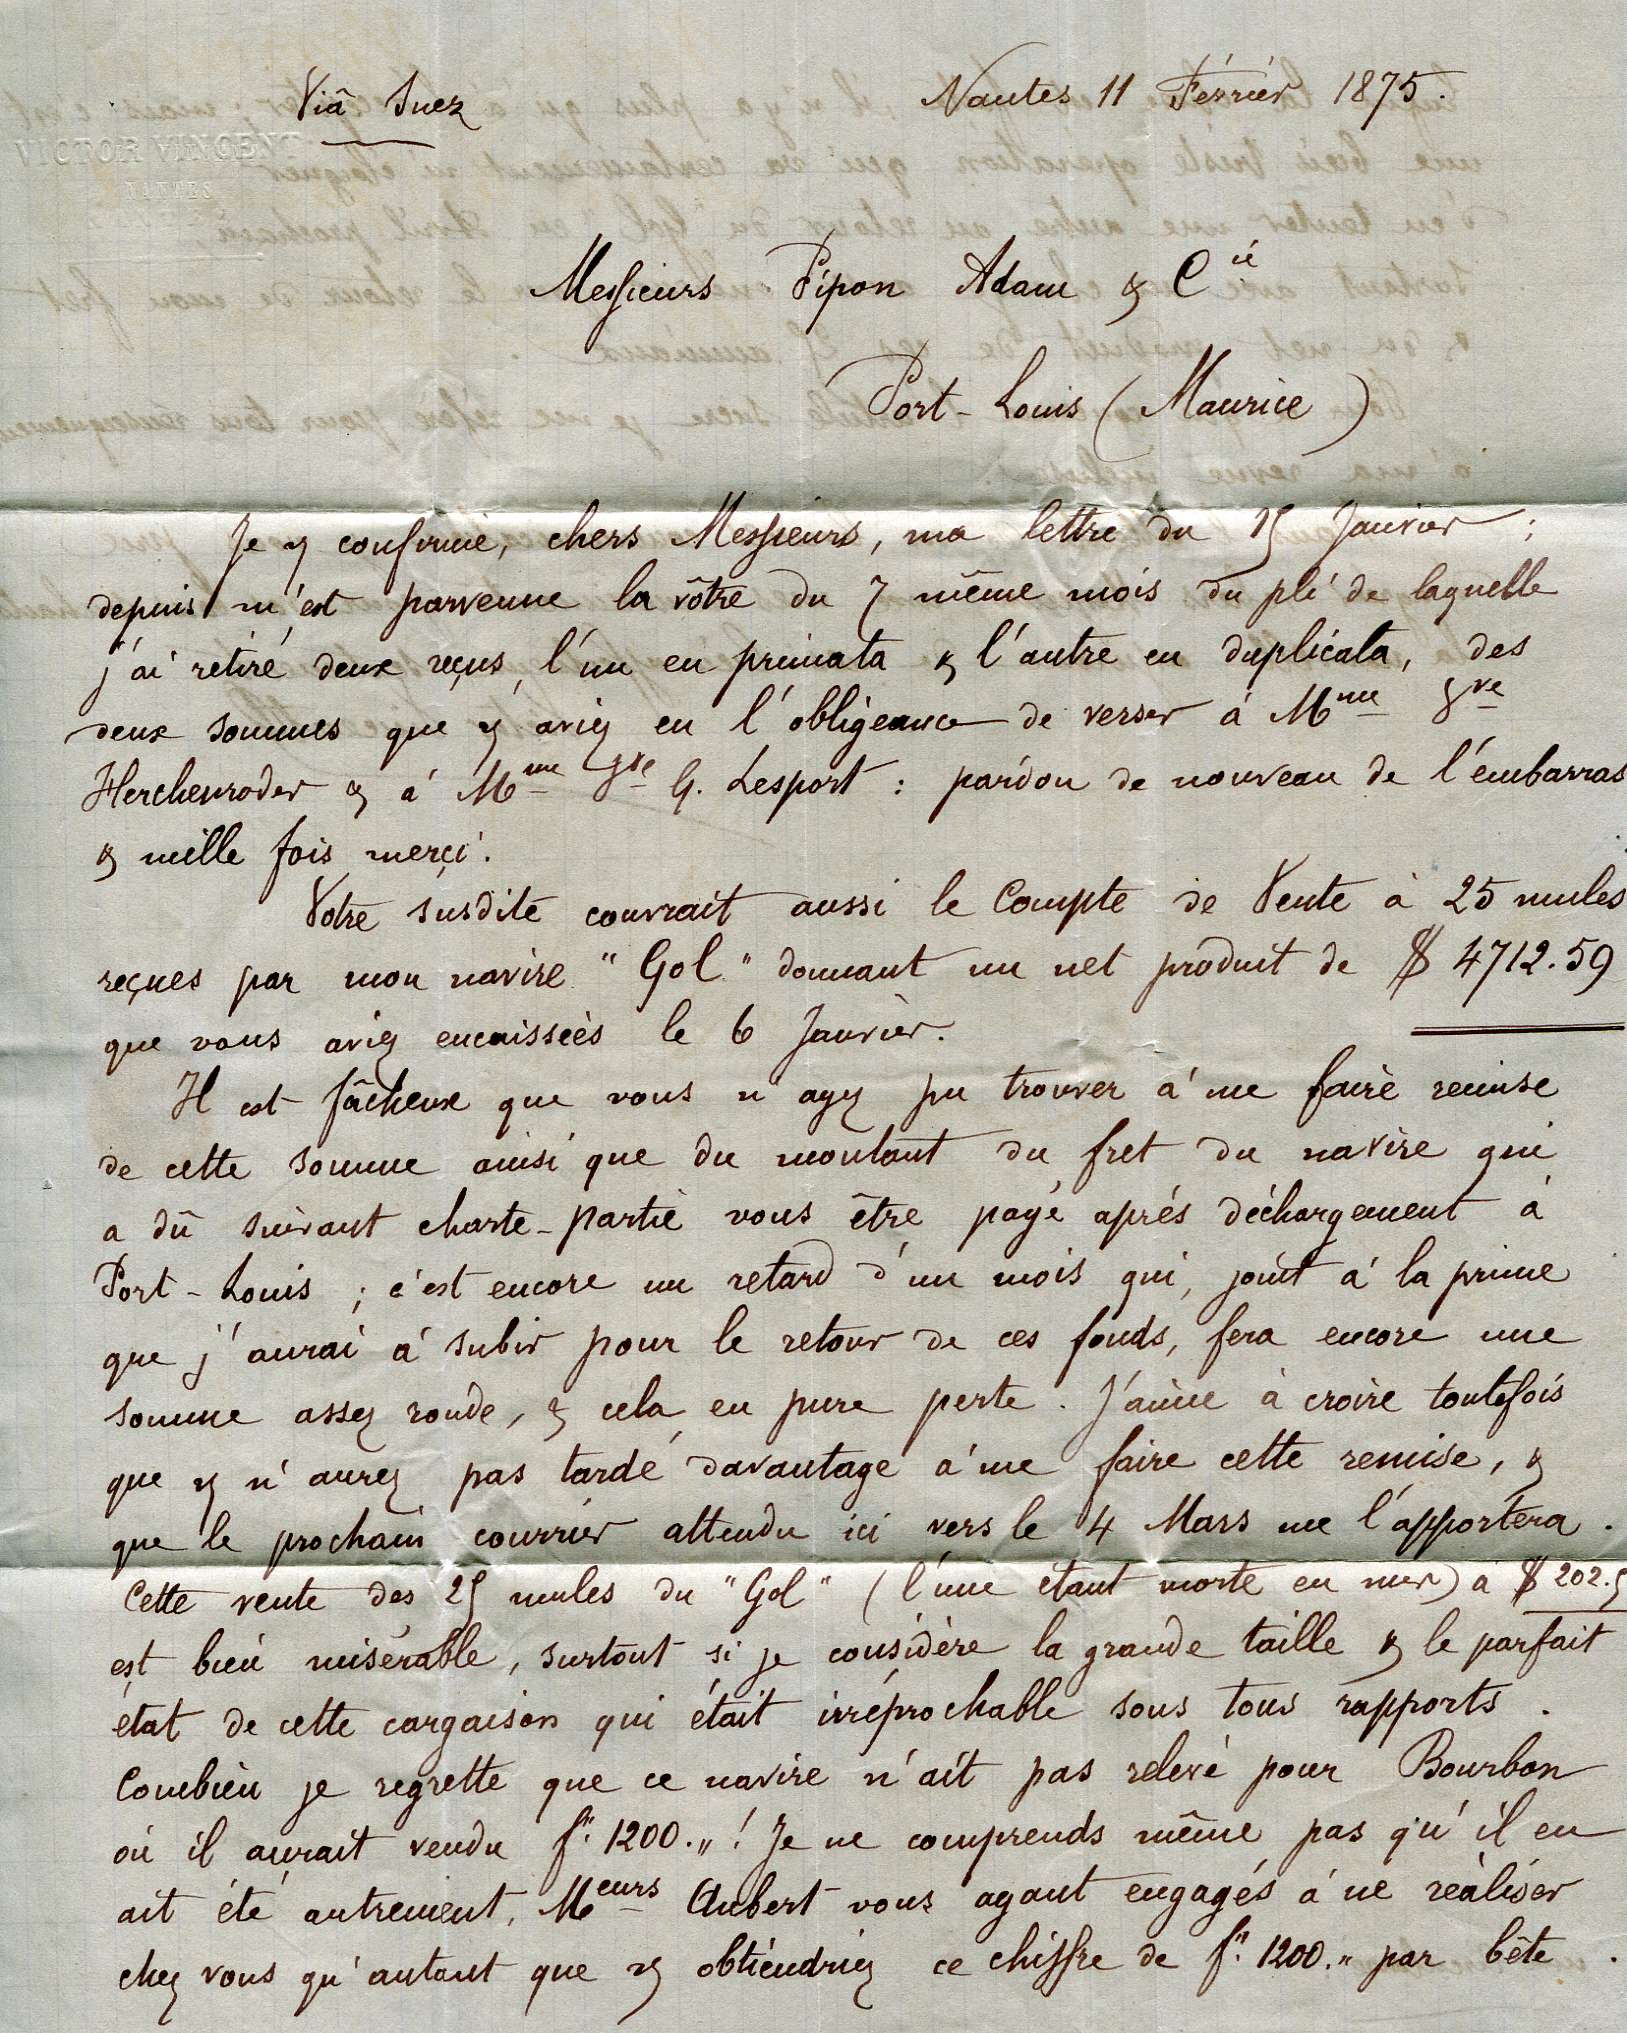 Viâ Suez
Nantes 11 Février 1875.
VICTOR VINCENT
NANTES
Messieurs Pipon Adam & Cie
Port-Louis (Maurice)
Je v confirme, chers Messieurs, ma lettre du 15 Janvier ;
depuis m'est parvenue la vôtre du 7 même mois du pli de laquelle
j'ai retiré deux reçus, l'un en primata & l'autre en duplicata, des
deux sommes que v aviez eu l'obligeance de verser à Mme Vve
Herchenroder & à Mme Vve G. Lesport : pardon de nouveau de l'embarras
& mille fois merçi.
Votre susdite couvrait aussi le Compte de Vente à 25 mules
reçues par mon navire "Gol" donnant un net produit de $ 4712.59
que vous aviez encaissées le 6 Janvier.
Il est fâcheux que vous n'ayez pu trouver à me faire remise
de cette somme ainsi que du montant du fret du navire qui
a dû suivant charte-partie vous être payé après déchargement à
Port-Louis ; c'est encore un retard d'un mois qui, joint à la prime
que j'aurai à subir pour le retour de ces fonds, fera encore une
somme assez ronde, & cela en pure perte. J'aime à croire toutefois
que v n'aurez pas tardé davantage à me faire cette remise, &
que le prochain courrier attendu ici vers le 4 Mars me l'apportera.
Cette vente des 25 mules du "Gol" (l'une étant morte en mer) à $ 202.5
est bien misérable, surtout si je considère la grande taille & le parfait
état de cette cargaison qui était irréprochable sous tous rapports.
Combien je regrette que ce navire n'ait pas relevé pour Bourbon
où il aurait vendu f. 1200.,, ! Je ne comprends même pas qu'il en
ait été autrement, Meurs Aubert vous ayant engagés à ne réaliser
chez vous qu'autant que v obtiendriez ce chiffre de f. 1200.,, par bête.